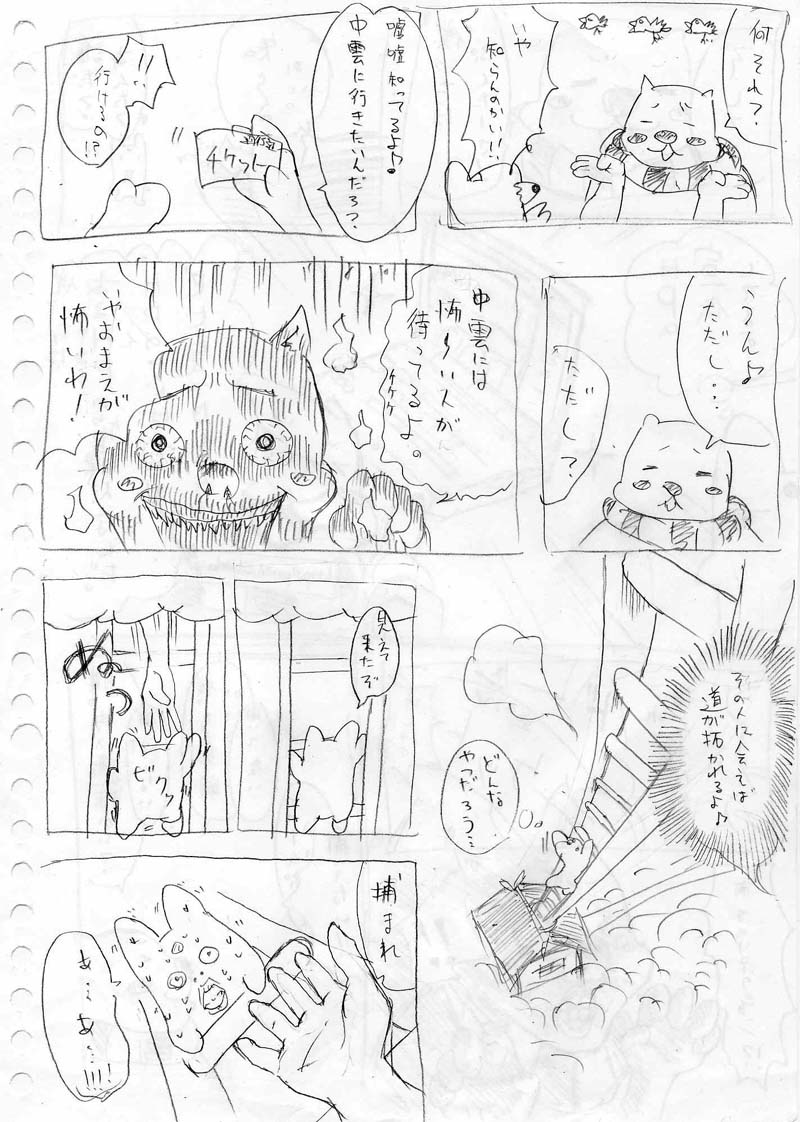 何それ?
いや
知らんのかい!!
嘘嘘知ってるよ♪
中雲に行きたいんだろ?
チケット
!!
行けるの!?
うん♪
ただし…
ただし?
中雲には
怖〜い人が
待ってるよ。
ケケケ
いやおまえが
怖いわ!
その人に会えば
道が拓かれるよ♪
どんな
やつだろう…
見えて
来たぞ
ぬーっ
ビクッ
捕まれ
あ…あ…!!!